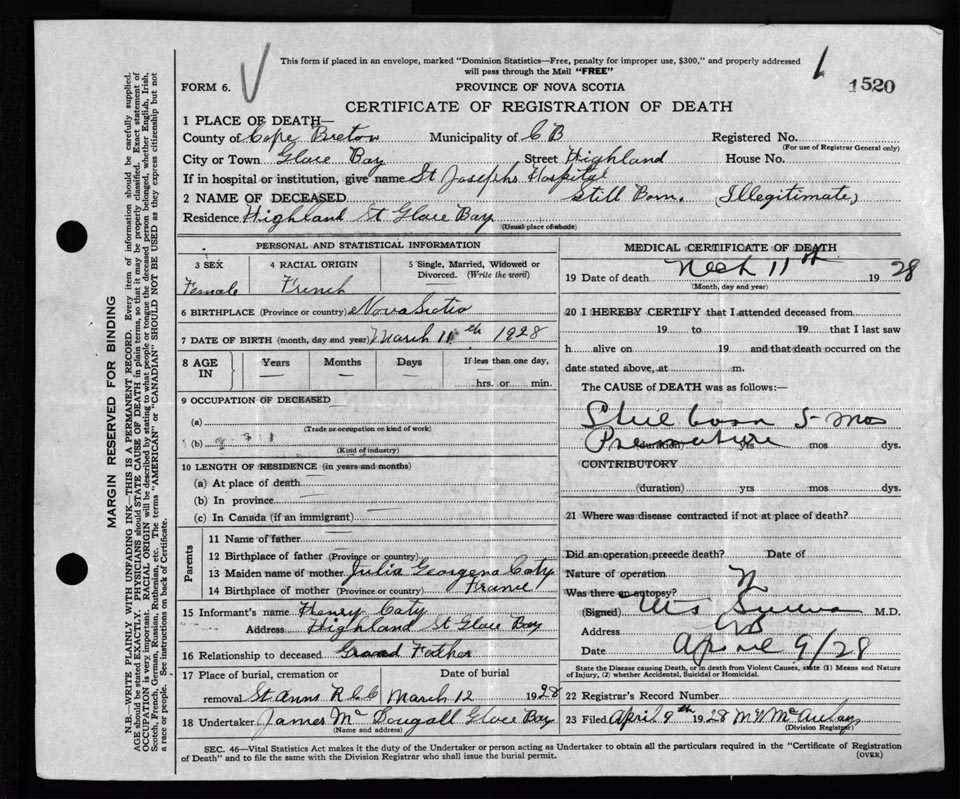 This form if placed in an envelope, marked “Dominion Statistics—Free, penalty for improper use, $300,” and properly addressed
will pass through the Mail “FREE”
1520
FORM 6.
PROVINCE OF NOVA SCOTIA
CERTIFICATE OF REGISTRATION OF DEATH
1 PLACE OF DEATH—
County of Cape Breton Municipality of C B Registered No.
(For use of Registrar General only)
City or Town Glace Bay Street Highland House No.
If in hospital or institution, give name St Josephs Hospital
2 NAME OF DECEASED Still Born. (Illegitimate)
Residence Highland St Glace Bay
(Usual place of abode)
PERSONAL AND STATISTICAL INFORMATION
3 SEX
Female
4 RACIAL ORIGIN
French
5 Single, Married, Widowed or
Divorced. (Write the word)
6 BIRTHPLACE (Province or country) Nova Scotia
7 DATE OF BIRTH (month, day and year) March 11th 1928
8 AGE IN
Years Months Days If less than one day,
hrs. or min.
9 OCCUPATION OF DECEASED
(a)
(Trade or occupation or kind of work)
(b)
(Kind of industry)
10 LENGTH OF RESIDENCE (in years and months)
(a) At place of death
(b) In province
(c) In Canada (if an immigrant)
Parents
11 Name of father
12 Birthplace of father (Province or country)
13 Maiden name of mother Julia Georgena Caty
14 Birthplace of mother (Province or country) France
15 Informant's name Henry Caty
Address Highland St Glace Bay
16 Relationship to deceased Grand Father
17 Place of burial, cremation or Date of burial
removal St Anns R C C March 12 1928
18 Undertaker James McDougall Glace Bay
(Name and address)
MEDICAL CERTIFICATE OF DEATH
19 Date of death 11th 1928
(Month, day and year)
20 I HEREBY CERTIFY that I attended deceased from
19 to 19 that I last saw
h alive on 19 and that death occurred on the
date stated above, at m.
The CAUSE of DEATH was as follows:—
Still born 5 mos
Premature
(duration) yrs mos dys.
CONTRIBUTORY
(duration) yrs mos dys.
21 Where was disease contracted if not at place of death?
Did an operation precede death? Date of
Nature of operation
Was there an autopsy? N
(Signed) M.D.
Address GB
Date April 9/28
State the Disease causing Death, or in death from Violent Causes, state (1) Means and Nature
of Injury, (2) whether Accidental, Suicidal or Homicidal.
22 Registrar's Record Number
23 Filed April 9th 1928 M W McAulay
(Division Registrar)
SEC. 46—Vital Statistics Act makes it the duty of the Undertaker or person acting as Undertaker to obtain all the particulars required in the “Certificate of Registration
of Death” and to file the same with the Division Registrar who shall issue the burial permit.
(OVER)
MARGIN RESERVED FOR BINDING
N.B.—WRITE PLAINLY WITH UNFADING INK—THIS IS A PERMANENT RECORD. Every item of information should be carefully supplied.
AGE should be stated EXACTLY. PHYSICIANS should STATE CAUSE OF DEATH in plain terms, so that it may be properly classified. Exact statement of
OCCUPATION is very important. RACIAL ORIGIN will be described by stating to what people or tongue the deceased person belonged, whether English, Irish,
Scotch, French, German, Russian, Ruthenian, etc. The terms “AMERICAN” or “CANADIAN” SHOULD NOT BE USED as they express citizenship but not
a race or people. See instructions on back of Certificate.